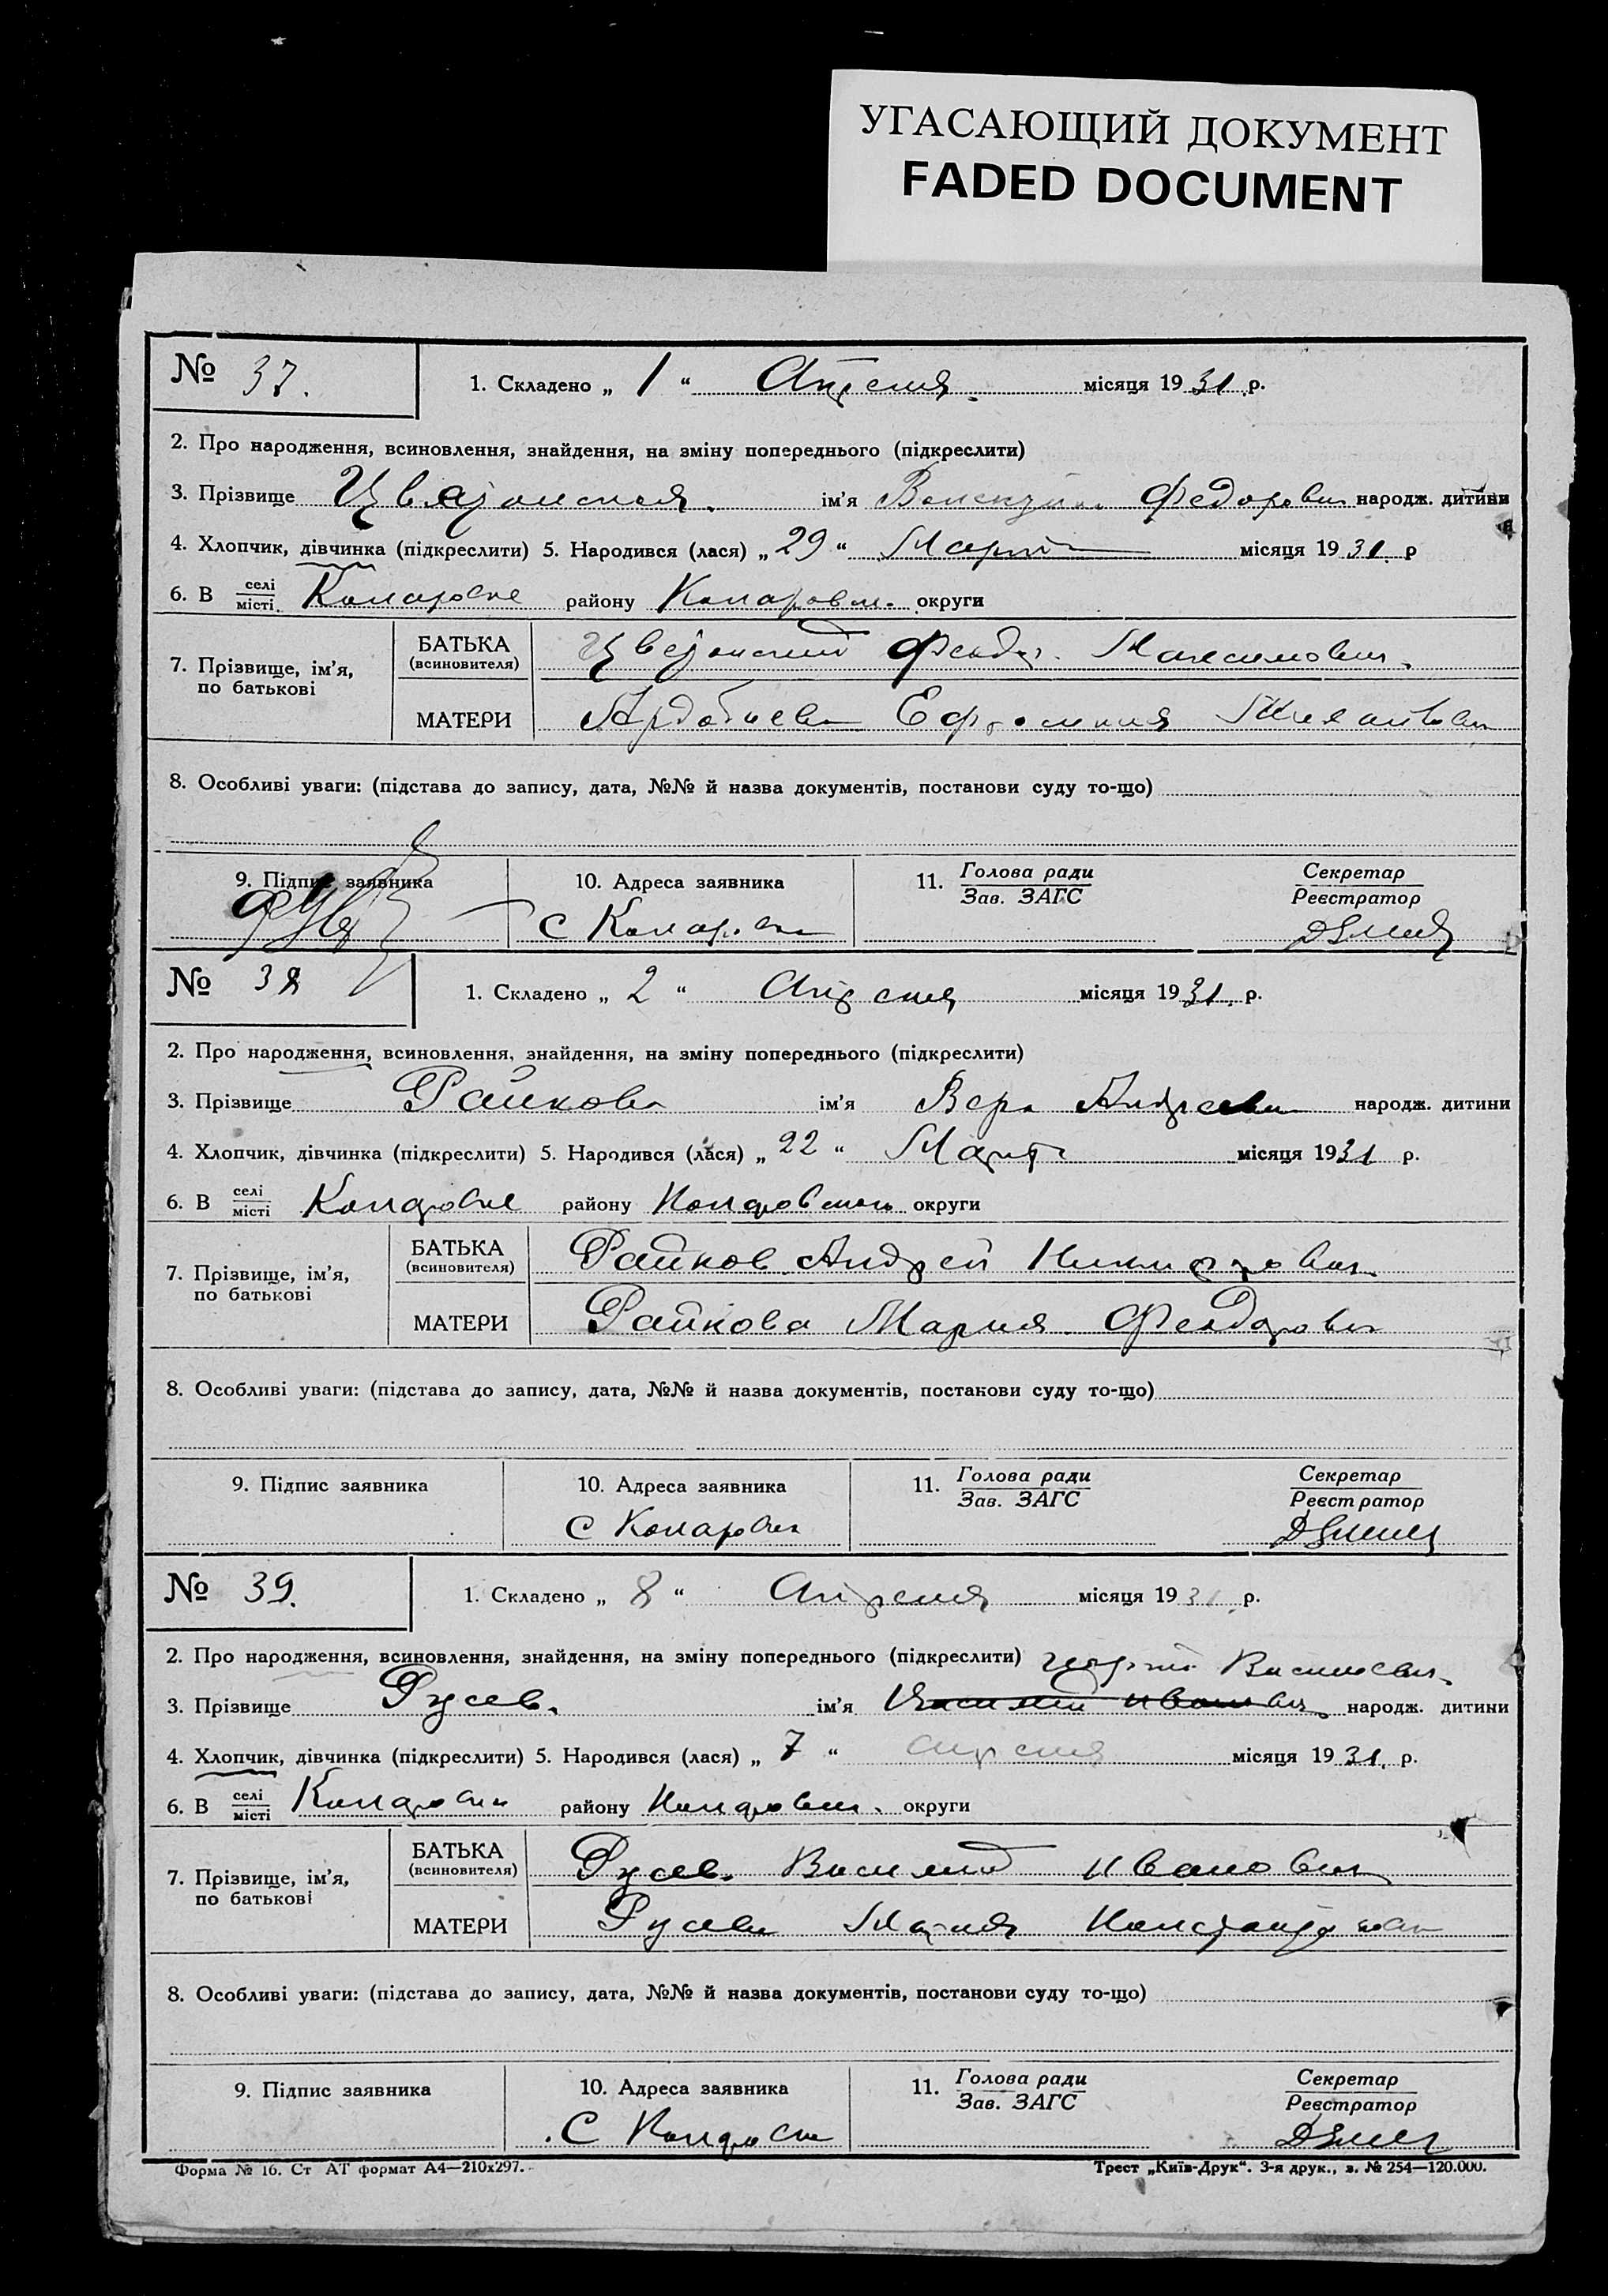 УГАСАЮЩИЙ ДОКУМЕНТ
FADED DOCUMENT
№ 37. 1. Складено „ 1 “ Апреля місяця 1931 р.
2. Про народження, всиновлення, знайдення, на зміну попереднього (підкреслити)
3. Прізвище ім’я Федоровн народж. дитини
4. Хлопчик, дівчинка (підкреслити) 5. Народився (лася) „ 29 “ Марта місяця 1931 р
6. В селі місті Коларовке району Коларовск. округи
7. Прізвище, ім’я, по батькові
БАТЬКА (всиновителя) Феодор Максимович
МАТЕРИ
8. Особливі уваги: (підстава до запису, дата, №№ й назва документів, постанови суду то-що)
9. Підпис заявника 10. Адреса заявника 11. Голова ради Зав. ЗАГС Секретар Реєстратор
С Коларовка
№ 38 1. Складено „ 2 “ Апреля місяця 1931. р.
2. Про народження, всиновлення, знайдення, на зміну попереднього (підкреслити)
3. Прізвище Райкова ім’я Вера Андреевна народж. дитини
4. Хлопчик, дівчинка (підкреслити) 5. Народився (лася) „ 22 “ Марта місяця 1931 р.
6. В селі місті Коларовке району Коларовского округи
7. Прізвище, ім’я, по батькові
БАТЬКА (всиновителя) Райков Андрей
МАТЕРИ Райкова Мария Феодоровн
8. Особливі уваги: (підстава до запису, дата, №№ й назва документів, постанови суду то-що)
9. Підпис заявника 10. Адреса заявника 11. Голова ради Зав. ЗАГС Секретар Реєстратор
С Коларовка
№ 39. 1. Складено „ 8 “ Апреля місяця 1931. р.
2. Про народження, всиновлення, знайдення, на зміну попереднього (підкреслити) Георгий Васильевич
3. Прізвище Русев. ім’я Василий Иванович народж. дитини
4. Хлопчик, дівчинка (підкреслити) 5. Народився (лася) „ 7 “ апреля місяця 1931. р.
6. В селі місті Коларовки району Коларовск. округи
7. Прізвище, ім’я, по батькові
БАТЬКА (всиновителя) Русев. Василий Иванович
МАТЕРИ Русева Мария
8. Особливі уваги: (підстава до запису, дата, №№ й назва документів, постанови суду то-що)
9. Підпис заявника 10. Адреса заявника 11. Голова ради Зав. ЗАГС Секретар Реєстратор
С Коларовка
Форма № 16. Ст АТ формат А4—210х297. Трест „Київ-Друк“. 3-я друк., з. № 254—120.000.